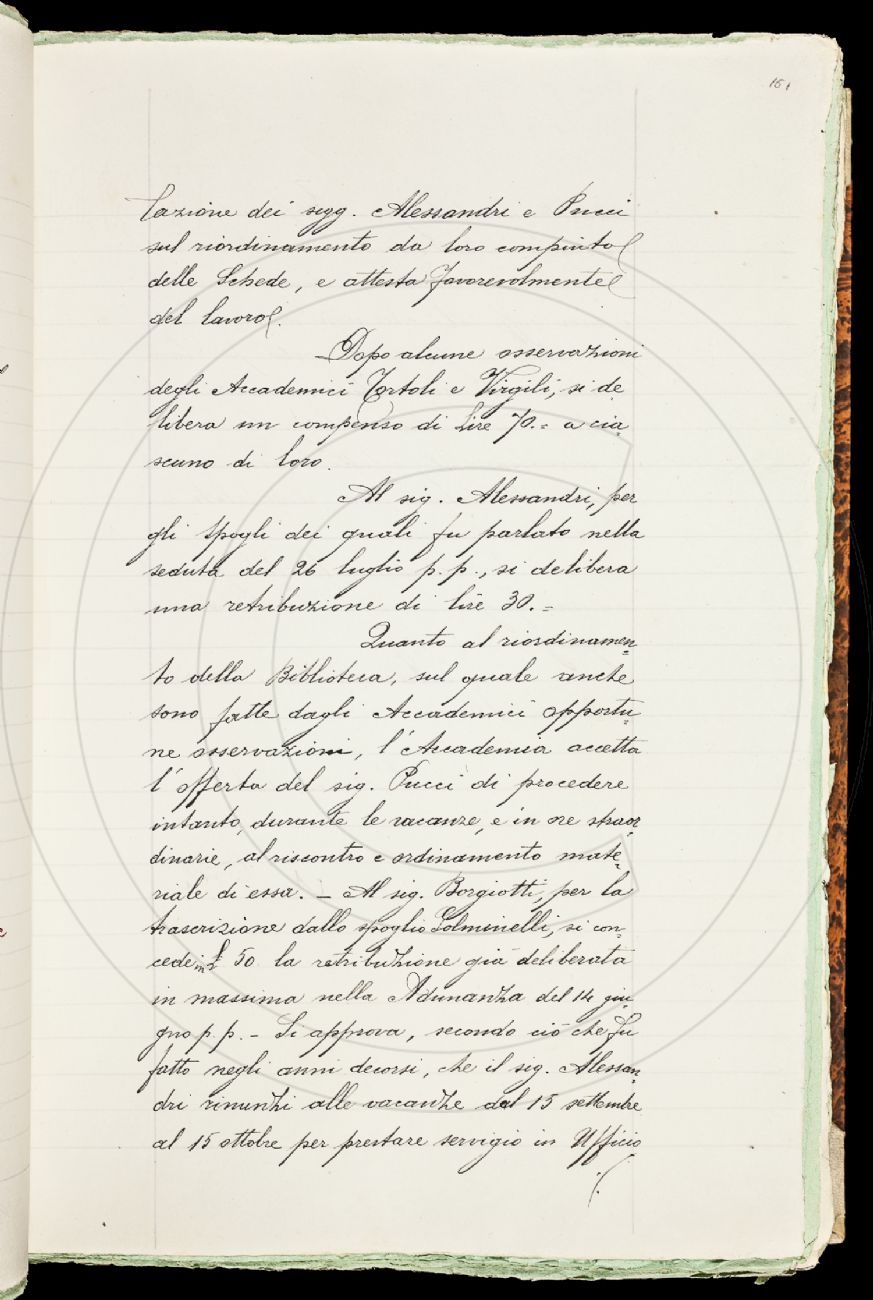 161
lazione dei sigg. Alessandri e Pucci
sul riordinamento da loro compiuto
delle Schede, e attesta favorevolmente
del lavoro.
Dopo alcune osservazioni
degli Accademici Tortoli e Virgilj, si de
libera un compenso di Lire 70.= a cia=
scuno di loro.
Al sig. Alessandri, per
gli spogli dei quali fu parlato nella
seduta del 26 luglio p. p., si delibera
una retribuzione di lire 30.=
Quanto al riordinamen=
to della Biblioteca, sul quale anche
sono fatte dagli Accademici opportu=
ne osservazioni, l'Accademia accetta
l'offerta del sig. Pucci di procedere
intanto, durante le vacanze, e in ore straor=
dinarie, al riscontro e ordinamento mate=
riale di essa. – Al sig. Borgiotti, per la
trascrizione dallo spoglio Golminelli, si con=
cede in £ 50 la retribuzione già deliberata
in massima nella Adunanza del 14 giu=
gno p. p. – Si approva, secondo ciò che fu
fatto negli anni decorsi, che il sig. Alessan=
dri rinunzi alle vacanze dal 15 settembre
al 15 ottobre per prestare servigio in Ufficio